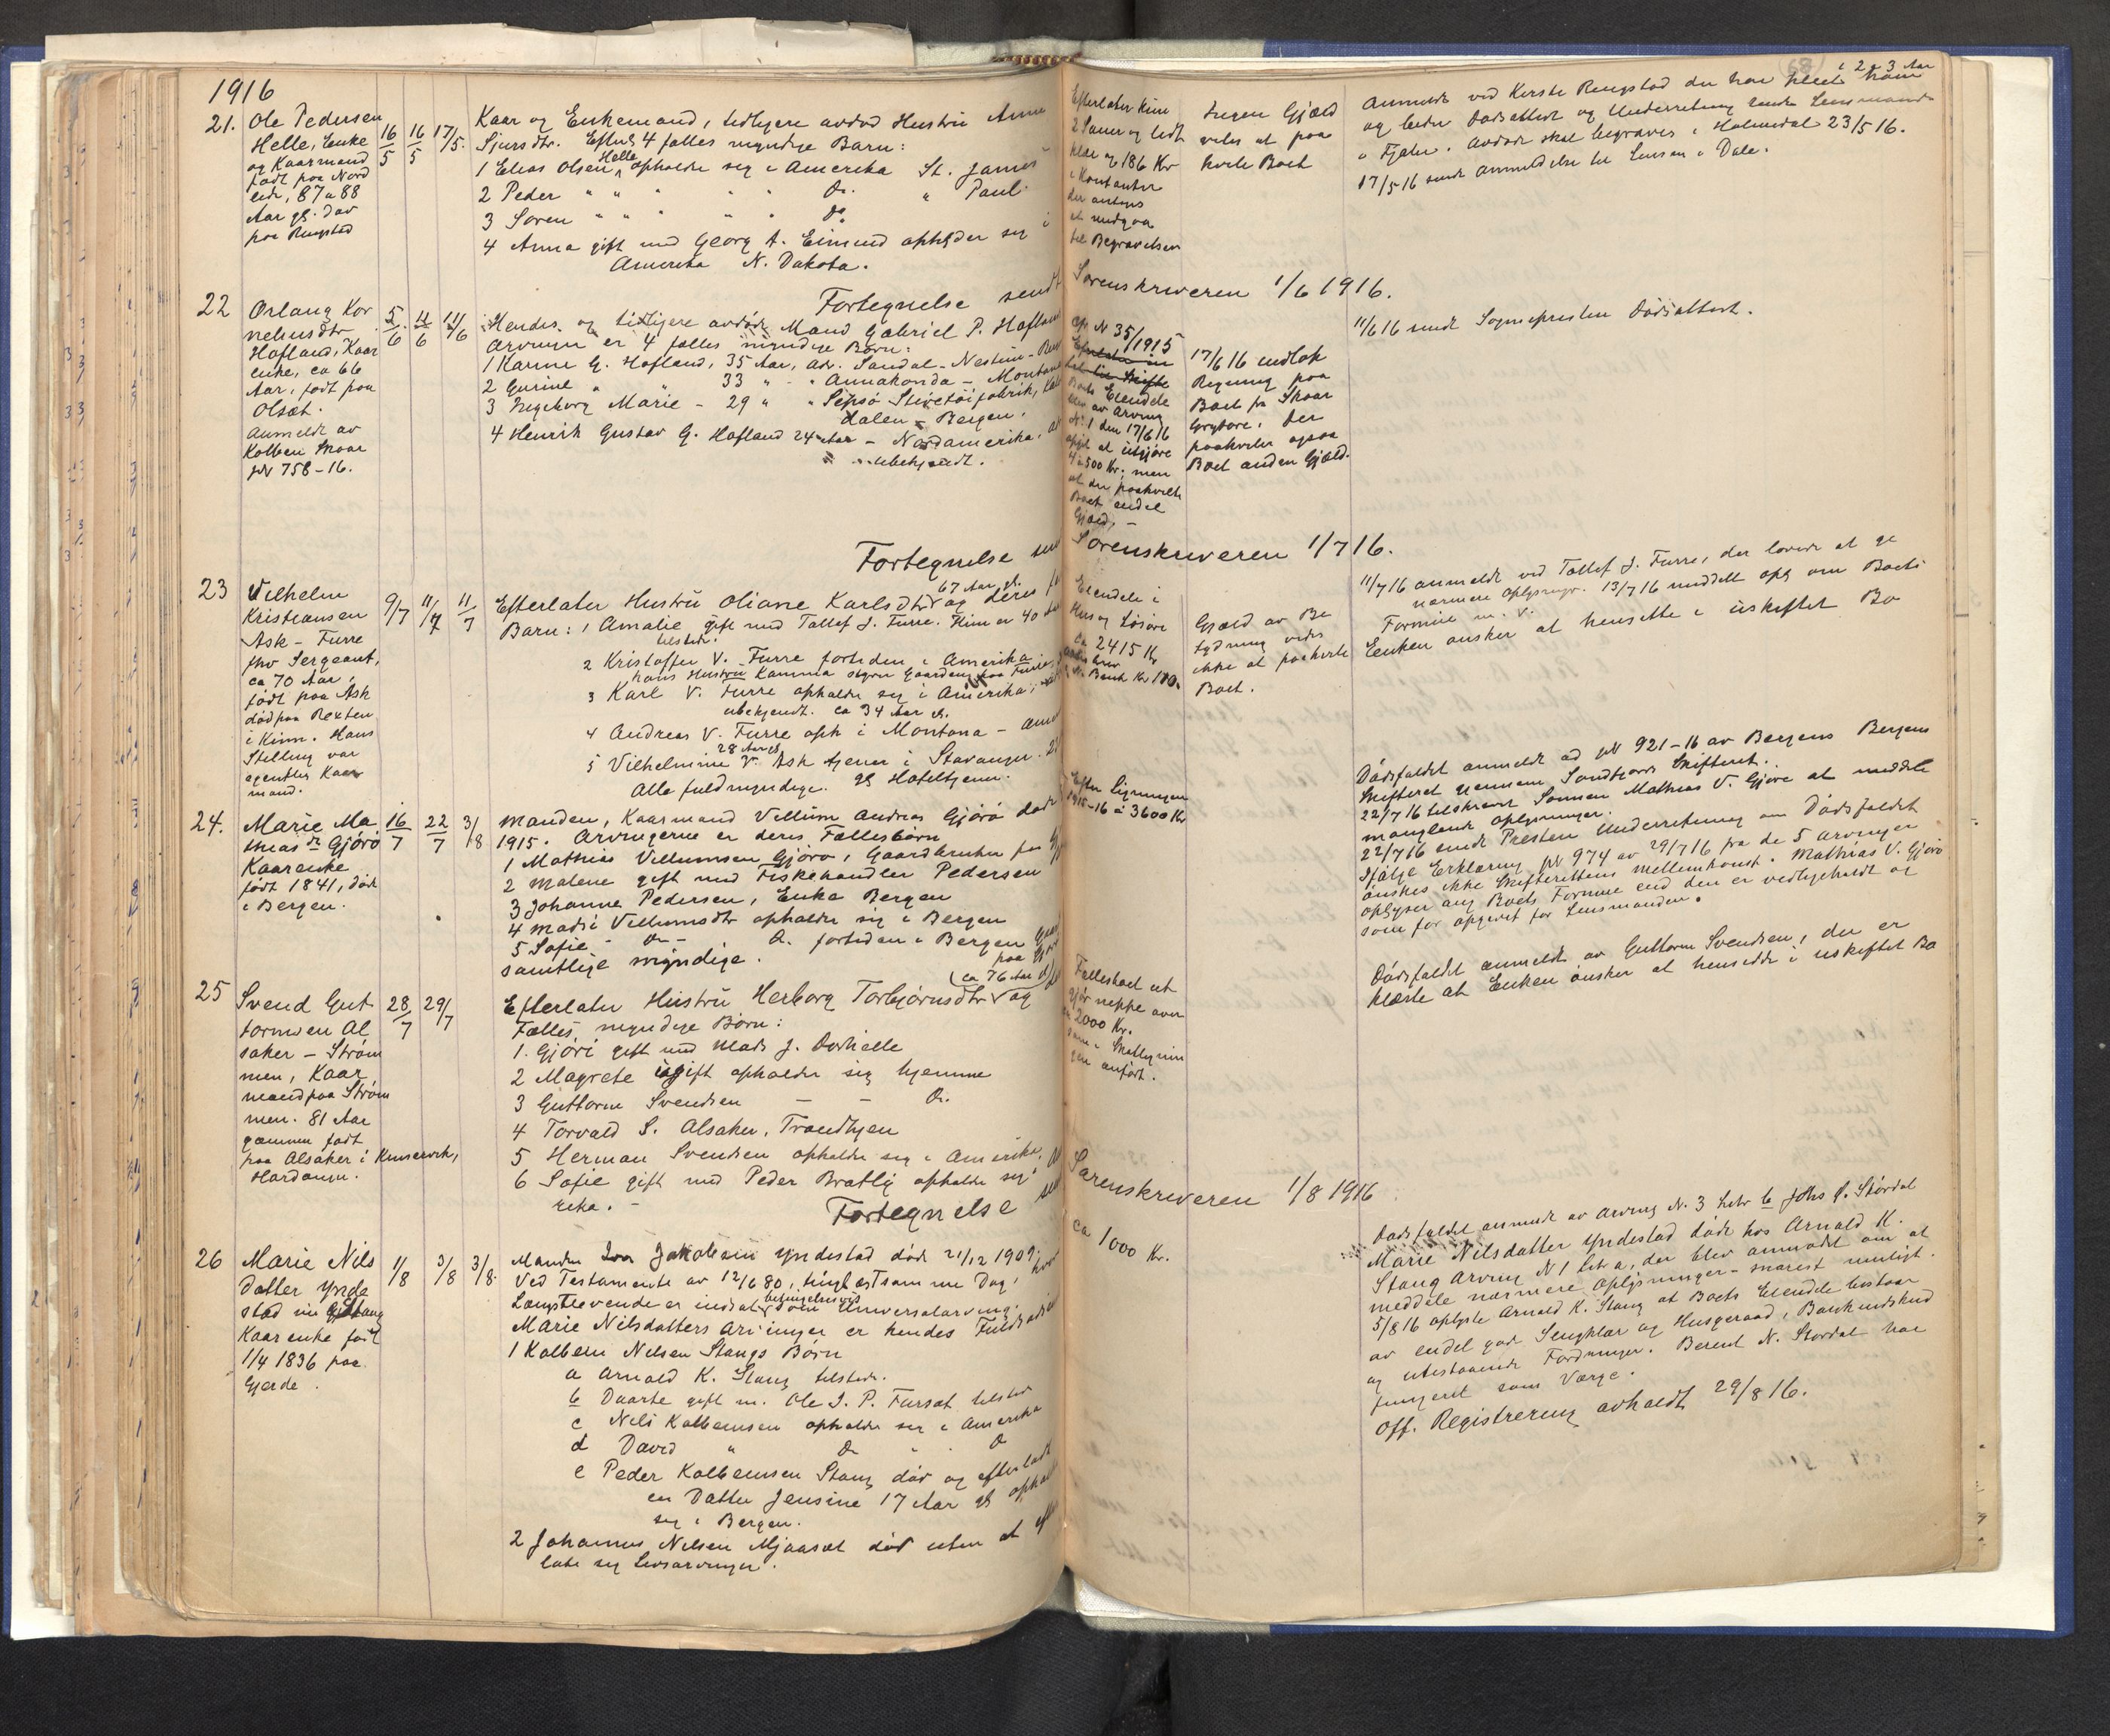 1916
21. Ole Pedersen
Helle, Enke
og Kaarmand
født paa Nord
eide, 87 a 88
Aar gl. Død
paa Ringstad
16/5 16/5 17/5.
Kaar og Enkemand, tidligere avdød Hustru Anna
Sjursdtr. Efterl. 4 fælles myndige Barn:
1 Elias Olsen Helle opholder sig i Amerika St. James
2 Peder " " " Do. " Paul.
3 Søren " " " " " Do.
4 Anna gift med Georg A. Eimind opholder sig i
Amerika N. Dakota.
Fortegnelse sendt
22 Orlaug Kor
neliusdtr
Hofland, Kaar
enke, ca 66
Aar, født paa
Olset.
Anmeldt av
Kolben Skaar
JN 758-16.
5/6 11/6 11/6
Hendes og tidligere avdøde Mand Gabriel P. Hofland
Arvinger er 4 fælles myndige Børn:
1 Karine G. Hofland, 35 Aar, adr. Sandal - Nestun - Ber
2 Gurine " " 33 " - " Annakonda - Montana
3 Ingeborg Marie - 29 " "
dalen - Bergen.
4 Henrik Gustav G. Hofland 24 Aar - Nordamerika.
ubekjendt.
Fortegnelse sen
23 Vilhelm
Kristiansen
Ask - Furre
fhv Sergeant,
ca 70 Aar,
født paa Ask
død paa Rexten
i Kinn. Hans
Stilling var
egentlig Kaar
mand.
9/7 11/7 11/7
67 Aar gl.
Efterlater Hustru Oliane Karlsdtr og deres
Barn: 1 Amalie gift med Tollef J. Furre. Hun er 40 Aar
tilstede.
2 Kristoffer V. Furre fortiden i Amerika
hans Hustru Kamma styrer Gaarden paa Furre
3 Karl V. Furre opholder sig i Amerika,
ubekjendt. ca 34 Aar gl.
4 Andreas V. Furre oph i Montana - Am
28 Aar gl
5 Vilhelmine V. Ask tjener i Stavanger. 2
Alle fuldmyndige. gl Hoteltjener.
24. Marie Ma
thiasdtr Gjörö
Kaarenke
født 1841, død
i Bergen.
16/7 22/7 3/8
Manden, Kaarmand Vellum Andreas Gjörö døde
1915. Arvingerne er deres Fællesbørn
1 Mathias Vellumsen Gjörö, Gaardbruker paa Gj
2 Malene gift med Fiskehandler Pedersen
3 Johanne Pedersen, Enke Bergen
4 Madsi Vellumsdtr opholder sig i Bergen
5 Sofie - Do - Do. fortiden i Bergen
samtlige myndige.
25 Svend Gut
tormsen Al
saker - Strøm
men, Kaar
mand paa Strøm
men. 81 Aar
gammen født
paa Alsaker i Kinservik,
Hardanger.
28/7 29/7
(ca 76 Aar gl)
Efterlater Hustru Herborg Torbjørnsdtr og
Fælles myndige Børn:
1. Gjöri gift med Mads J. Dorhelle
2 Magrete ugift opholder sig hjemme
3 Guttorm Svendsen - - Do.
4 Torvald S. Alsaker, Trondhjem
5 Herman Svendsen opholder sig i Amerika.
6 Sofie gift med Peder Bratlig opholder sig
rika. -
Fortegnelse sen
26 Marie Nils
Datter Ynde
stad
Kaarenke født
1/4 1836 paa
Gjerde.
1/8 3/8 3/8.
Manden Jakobsen Yndestad død 21/12 1909,
Ved Testamente av 12/6 80, tinglæst samme Dag,
betingelsesvis
Længstlevende er indsat som Universalarving.
Marie Nilsdatters arvinger er hendes
1 Kolbein Nilsen Stangs Børn
a Arnold K. Stang tilstede.
b Daarte gift m. Ole J. P. Fursæt tilsted
c Nils Kolbeinsen opholder sig i Amerika
d David " Do " Do
e Peder Kolbeinsen Stang død og efterladt
en Datter Jensine 17 Aar gl opholder
sig i Bergen.
2 Johannes Nilsen Mjaaset død uten at efter
late sig Livsarvinger.
Efterlater kun
2 Sauer og lidt
klær og 186 Kr
i Kontanter
der antages
at medgaa
til Begravelsen
Ingen Gjæld
vides at paa
hvile Boet
68
i 2 a 3 Aar
Anmeldt ved Kerste Ringstad der har pleiet ham
og beder Dødsattest og Underretning sendt Lensmanden
i Fjaler. Avdøde skal begraves i Holmedal 23/5 16.
17/5 16 sendt Anmeldelse til Lensm i Dale.
Sorenskriveren 1/6 1916.
cfr N 35/1915
Boets Eiendele
blev av Arving
N. 1 den 17/6 16
opgit at utgjøre
4 a 500 Kr, men
at der paahvilte
Boet endel
Gjæld. -
17/6 16 indtok
Regning paa
Boet fra Skaar
Der
paahviler ogsaa
Boet anden Gjæld.
11/6 16 sendt Sognepresten Dødsattest.
Sorenskriveren 1/7 16.
Eiendele i
Hus og Løsøre
ca 2415 Kr
Gjæld av Be
tydning vides
ikke at paahvile
Boet.
11/7 16 anmeldt ved Tollef J. Furre, der lovede at gi
nærmere oplysninger. 13/7 16 meddelt opl om Boets
Formue m. v.
Enken ønsker at hensitte i uskiftet Bo
Efter Ligningen
1915-16 a 3600 Kr
Dødsfaldet anmeldt ad JN 921-16 av Bergens Bergens
Skifteret gjennem Søndfjords Skifteret.
22/7 16 tilskrevet Sønnen Mathias V. Gjöre at meddele
manglende oplysninger.
22/7 16 sendt Presten Underretning om Dødsfaldet
Ifølge Erklæring JN 974 av 29/7 16 fra de 5 arvinger
ønskes ikke Skifterettens mellemkomst. Mathias V. Gjörö
oplyser ang Boets Formue end den er vedlikeholdt og
som før opgivet for Lensmanden.
Fællesboet ut
gjør neppe over
2000 Kr.
som i Skatteligni
gen anført.
Dødsfaldet anmeldt av Guttorm Svendsen, der er
klærte at Enken ønsker at hensidde i uskiftet Bo
Sorenskriveren 1/8 1916
ca 1000 Kr.
Dødsfaldet anmeldt av Arving N. 3 Litr b Johs P. Stördal
Marie Nilsdatter Yndestad døde hos Arnold K.
Stang Arving N 1 litr a, der blev anmodet om at
meddele nærmere oplysninger - snarest muligt.
5/8 16 oplyste Arnold K. Stang at Boets Eiendele bestaar
av endel god Sengklær og Husgeraad, Bankindskud
og utestaaende Fordringer. Berent N. Stordal har
fungeret som Værge.
Off. Registrering avholdt 29/8 16.